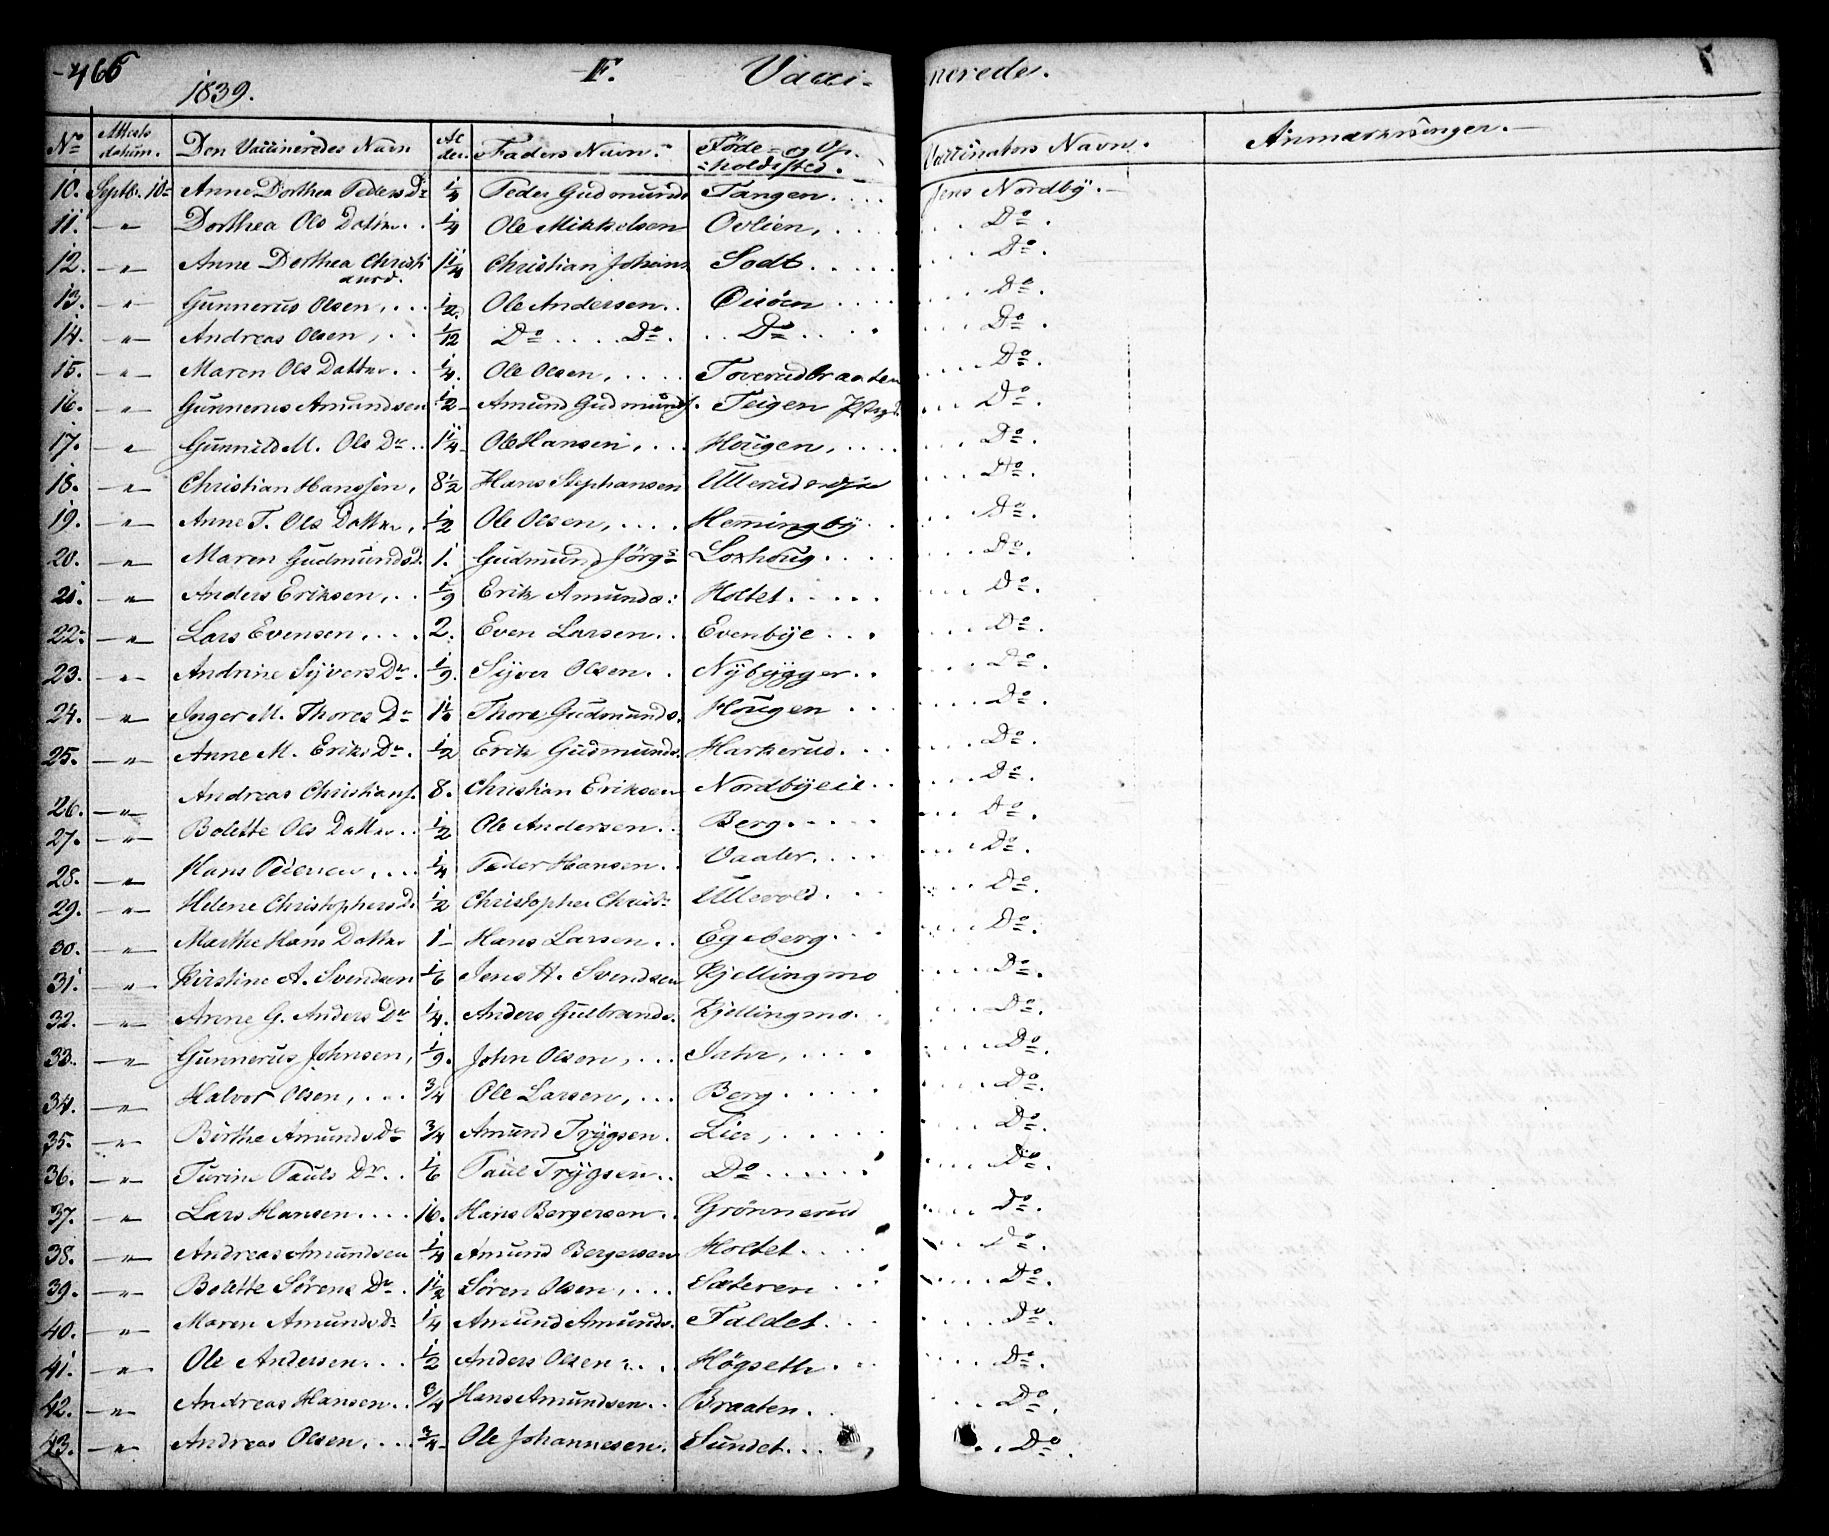 -466 F. Vacci- nerede.
1839.
No Attests datum. Den Vaccineredes Navn Al der. Faders Navn. Föde- og Op- holdssted. Vaccinators Navn. Anmærkninger.
10. Septb. 10 Anne Dorthea Peders Dr 1/4 Peder Gudmunds Tangen.... Jens Nordby.
11. —"— Dorthea Ols Datter.. 1/4 Ole Mikkelsen Ovlien, .... Do.
12. —"— Anne Dorthea Christi ansd. 1 1/4 Christian Johans Sodt..... Do.
13. —"— Gunnerus Olsen, ... 1/2. Ole Andersen.. .... Do.
14. —"— Andreas Olsen, .. 1/12 Do .... Do. .. Do.... Do.
15. —"— Maren Ols Datter.. 1/4. Ole Olsen, .... Toverudbraaten Do.
16. —"— Gunnerus Amundsen 1/2 Amund Gudmunds. Teigen Do.
17. —"— Gunnild M. Ols Dr.. 1 1/4 Ole Hansen, ... Hougen, .... Do.
18. —"— Christian Hanssen, 8 1/2 Hans Stephansen Ullerud Do.
19. —"— Anne T. Ols Datter, 1/2 Ole Olsen, .... Hemingby.. Do.
20. —"— Maren Gudmundsd. 1. Gudmund Jörgs Loxhoug.... Do.
21. —"— Anders Eriksen, .. 1/9 Erik Amunds: Holtet..... Do.
22. —"— Lars Evensen, ... 2. Even Larsen.. Evenbye... Do.
23. —"— Andrine Syvers Dr. 1/9. Syver Olsen.. Nybygger.. Do.
24. —"— Inger M. Thores Dr 1 1/6 Thore Gudmunds. Hougen ... Do.
25. —"— Anne M. Eriks Dr. 1/2 Erik Gudmunds. Harkerud... Do.
26. —"— Andreas Christians. 8. Christian Eriksen Nordbyeie.. Do.
27. —"— Bolette Ols Datter.. 1/2 Ole Andersen.. Berg..... Do.
28. —"— Hans Pedersen, ... 1/4 Peder Hansen.. Vaaler.... Do.
29. —"— Helene Christophersd. 1/2 Christopher Christs Ullevold... Do.
30. —"— Marthe Hans Datter 1- Hans Larsen.. Egeberg... Do.
31. —"— Kirstine A. Svendsen 1/6 Jens H. Svendsen Kjellingmo Do.
32. —"— Anne G. Anders Dr 1/4. Anders Gulbrands. Kjellingmo.. Do.
33. —"— Gunnerus Johnsen, 1/9. John Olsen, ... Jahr, .... Do.
34. —"— Halvor Olsen, ... 3/4 Ole Larsen, ... Berg..... Do.
35. —"— Birthe Amunds Dr 3/4 Amund Trygsen. Lier, ..... Do.
36. —"— Turine Pauls Dr.. 1/6 Paul Trygsen.. Do...... Do.
37. —"— Lars Hansen.... 16. Hans Bergersen.. Grönnerud Do.
38. —"— Andreas Amundsen 1/4 Amund Bergersen Holtet.... Do.
39. —"— Bolette Sörens Dr. 1 1/2 Sören Olsen, ... Sæteren .. Do.
40. —"— Maren Amundsdr 1/4 Amund Amunds. Faldet... Do.
41. —"— Ole Andersen... 1/2 Anders Olsen... Högseth... Do.
42. —"— Andreas Hansen.. 3/4 Hans Amundsen.. Braaten.. Do.
43. —"— Andreas Olsen.... 3/4 Ole Johannesen. Sundet... Do.